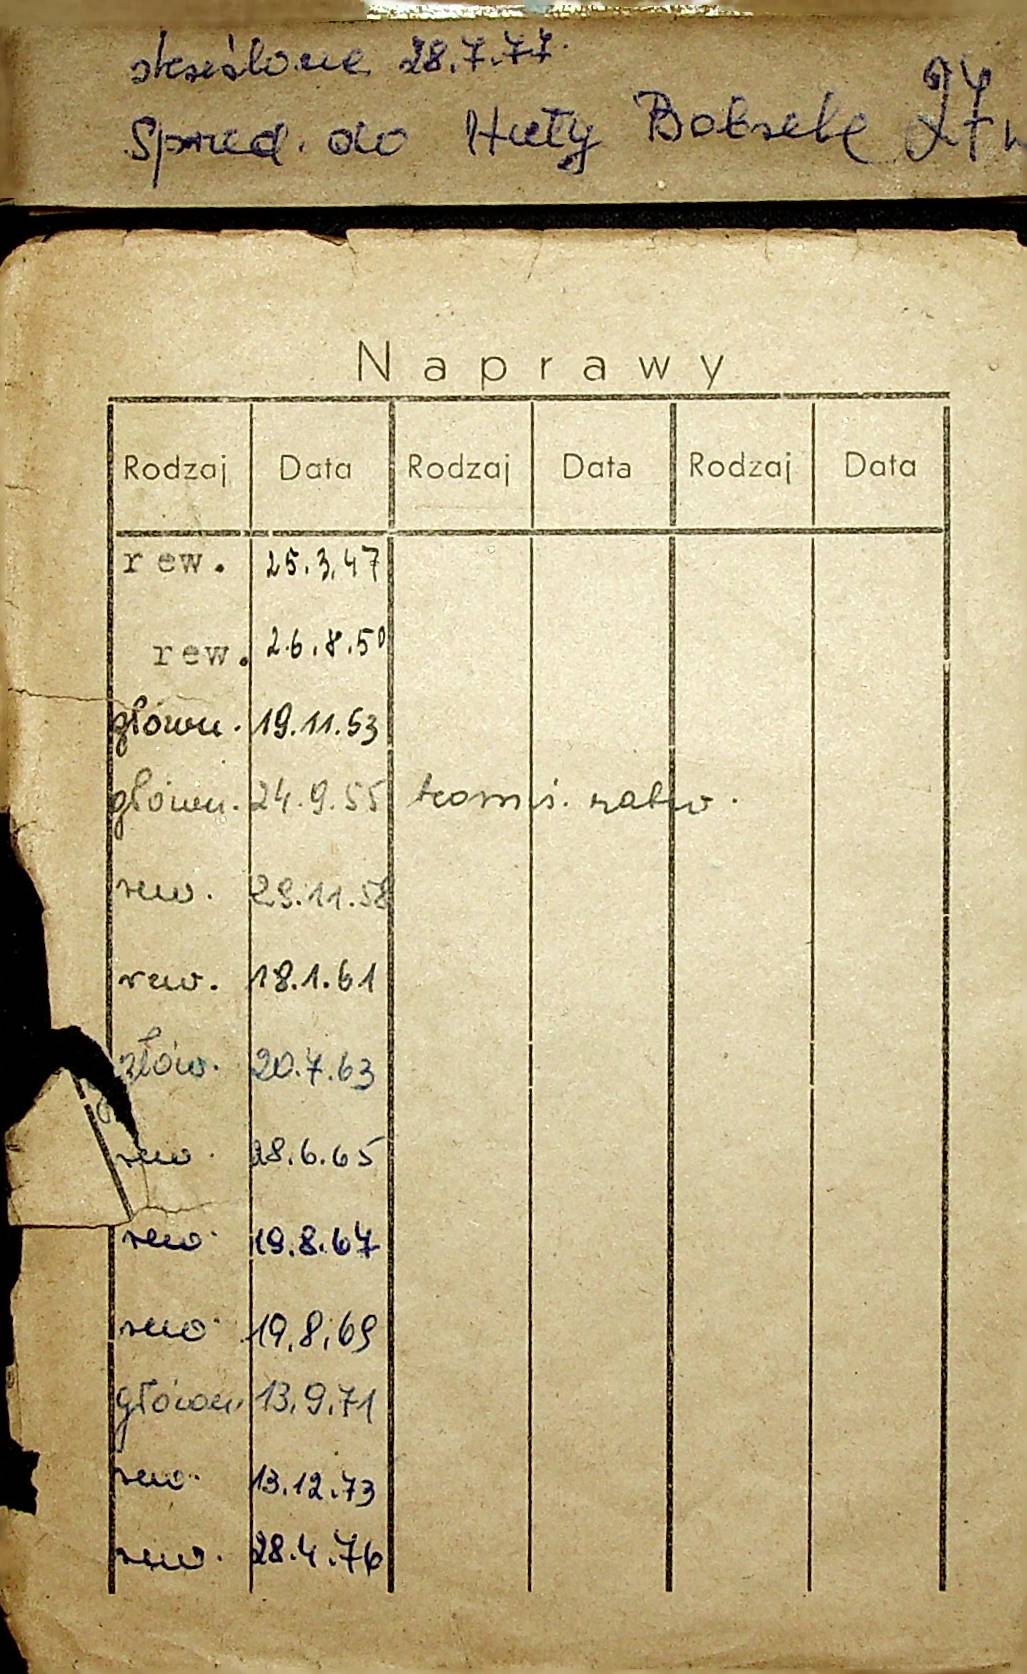 skreślone 28.7.77.
Sprzed. do Huty Bobrek
Naprawy
Rodzaj Data Rodzaj Data Rodzaj Data
rew. 25.3.47
rew. 26.8.50
główn. 19.11.53
główn. 24.9.55 komis. zatw.
rew. 29.11.58
rew. 18.1.61
głów. 20.7.63
rew. 28.6.65
rew. 19.8.67
rew. 19.8.69
główn. 13.9.71
rew. 13.12.73
rew. 28.4.76